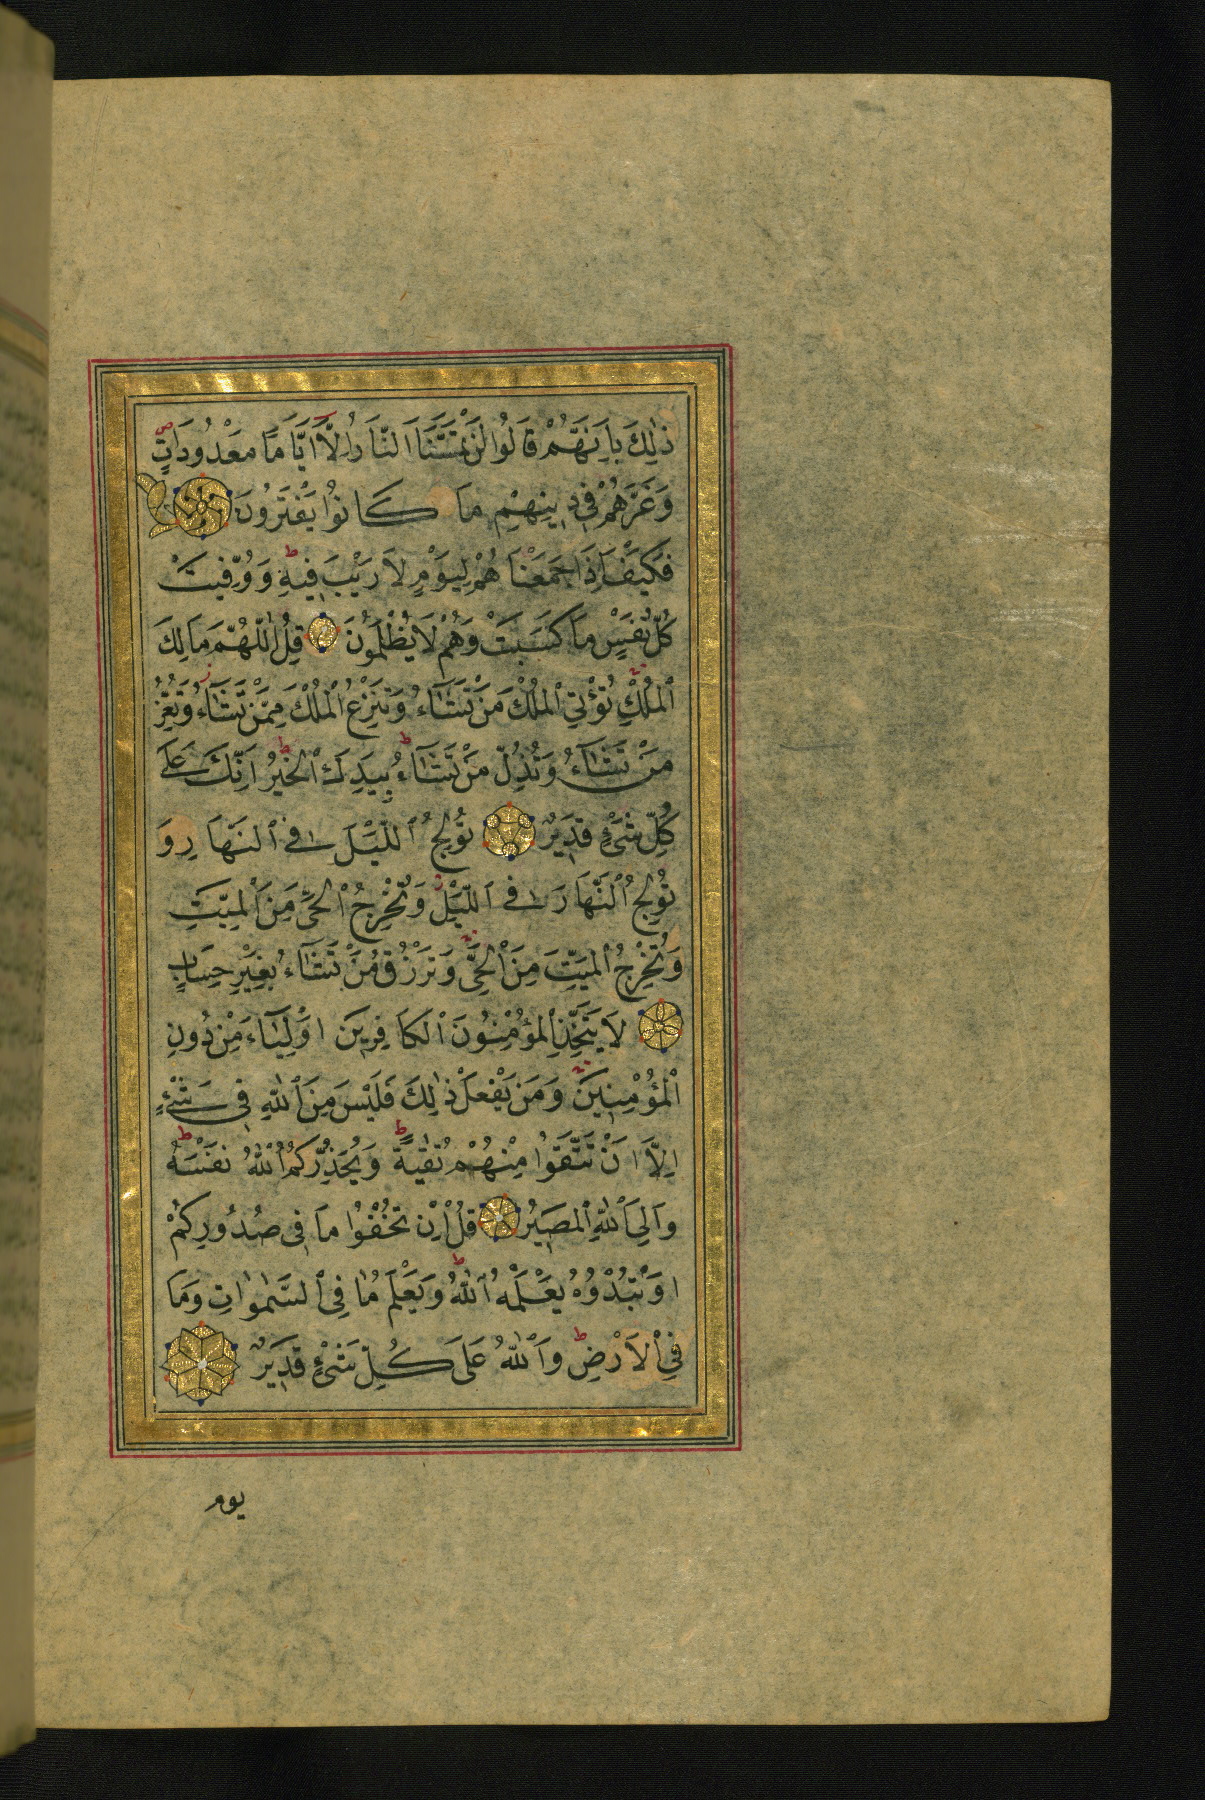 ذٰلِكَ بِاَنَّهُمْ قَالُوا لَنْ تَمَسَّنَا النَّارُ اِلَّا اَيَّامًا مَعْدُودَاتٍ
وَغَرَّهُمْ فِي دِينِهِمْ مَا كَانُوا يَفْتَرُونَ
فَكَيْفَ اِذَا جَمَعْنَاهُمْ لِيَوْمٍ لَا رَيْبَ فِيهِ وَوُفِّيَتْ
كُلُّ نَفْسٍ مَا كَسَبَتْ وَهُمْ لَا يُظْلَمُونَ قُلِ اللّٰهُمَّ مَالِكَ
الْمُلْكِ تُؤْتِي الْمُلْكَ مَنْ تَشَآءُ وَتَنْزِعُ الْمُلْكَ مِمَّنْ تَشَآءُ وَتُعِزُّ
مَنْ تَشَآءُ وَتُذِلُّ مَنْ تَشَآءُ بِيَدِكَ الْخَيْرُ اِنَّكَ عَلٰى
كُلِّ شَيْءٍ قَدِيرٌ تُولِجُ اللَّيْلَ فِي النَّهَارِ وَ
تُولِجُ النَّهَارَ فِي اللَّيْلِ وَتُخْرِجُ الْحَيَّ مِنَ الْمَيِّتِ
وَتُخْرِجُ الْمَيِّتَ مِنَ الْحَيِّ وَتَرْزُقُ مَنْ تَشَآءُ بِغَيْرِ حِسَابٍ
لَا يَتَّخِذِ الْمُؤْمِنُونَ الْكَافِرِينَ اَوْلِيَآءَ مِنْ دُونِ
الْمُؤْمِنِينَ وَمَنْ يَفْعَلْ ذٰلِكَ فَلَيْسَ مِنَ اللّٰهِ فِي شَيْءٍ
اِلَّا اَنْ تَتَّقُوا مِنْهُمْ تُقٰيةً وَيُحَذِّرُكُمُ اللّٰهُ نَفْسَهُ
وَاِلَى اللّٰهِ الْمَصِيرُ قُلْ اِنْ تُخْفُوا مَا فِي صُدُورِكُمْ
اَوْ تُبْدُوهُ يَعْلَمْهُ اللّٰهُ وَيَعْلَمُ مَا فِي السَّمٰوَاتِ وَمَا
فِي الْاَرْضِ وَاللّٰهُ عَلٰى كُلِّ شَيْءٍ قَدِيرٌ
يوم